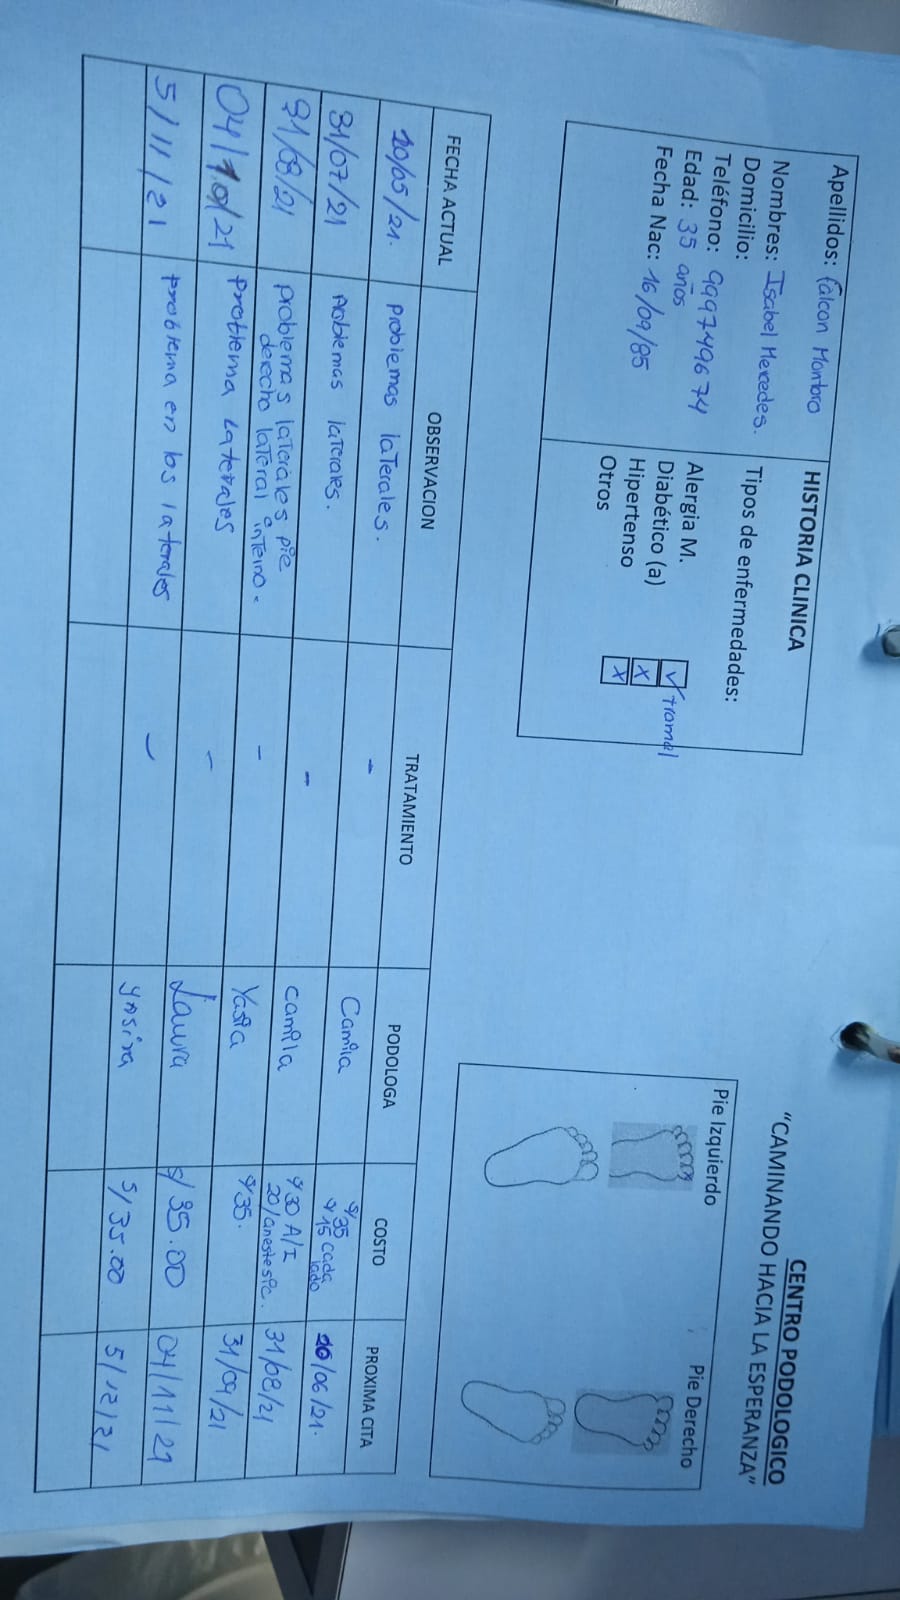 Apellidos: Falcon Montoro
Nombres: Isabel Mercedes.
Domicilio:
Teléfono: 999749674
Edad: 35 años
Fecha Nac: 16/09/85
HISTORIA CLINICA
Tipos de enfermedades:
Alergia M. ✓ tramal
Diabético (a) x
Hipertenso x
Otros
CENTRO PODOLOGICO
“CAMINANDO HACIA LA ESPERANZA”
Pie Izquierdo
Pie Derecho
FECHA ACTUAL OBSERVACION TRATAMIENTO PODOLOGA COSTO PROXIMA CITA
10/05/21. problemas laTerales. - Camila S/35
S/15 cada
lado
10/06/21.
31/07/21 problemas laTerales. - camila S/30 A/I
20/anestesic.
31/08/21
31/08/21 problemas laTerales pie
derecho laTeral interno.
- Yasira S/35. 31/09/21
04/10/21 problema laterales - Laura S/35.00 04/11/21
5/11/21 problema en los laterales - yasira S/35.00 5/12/21